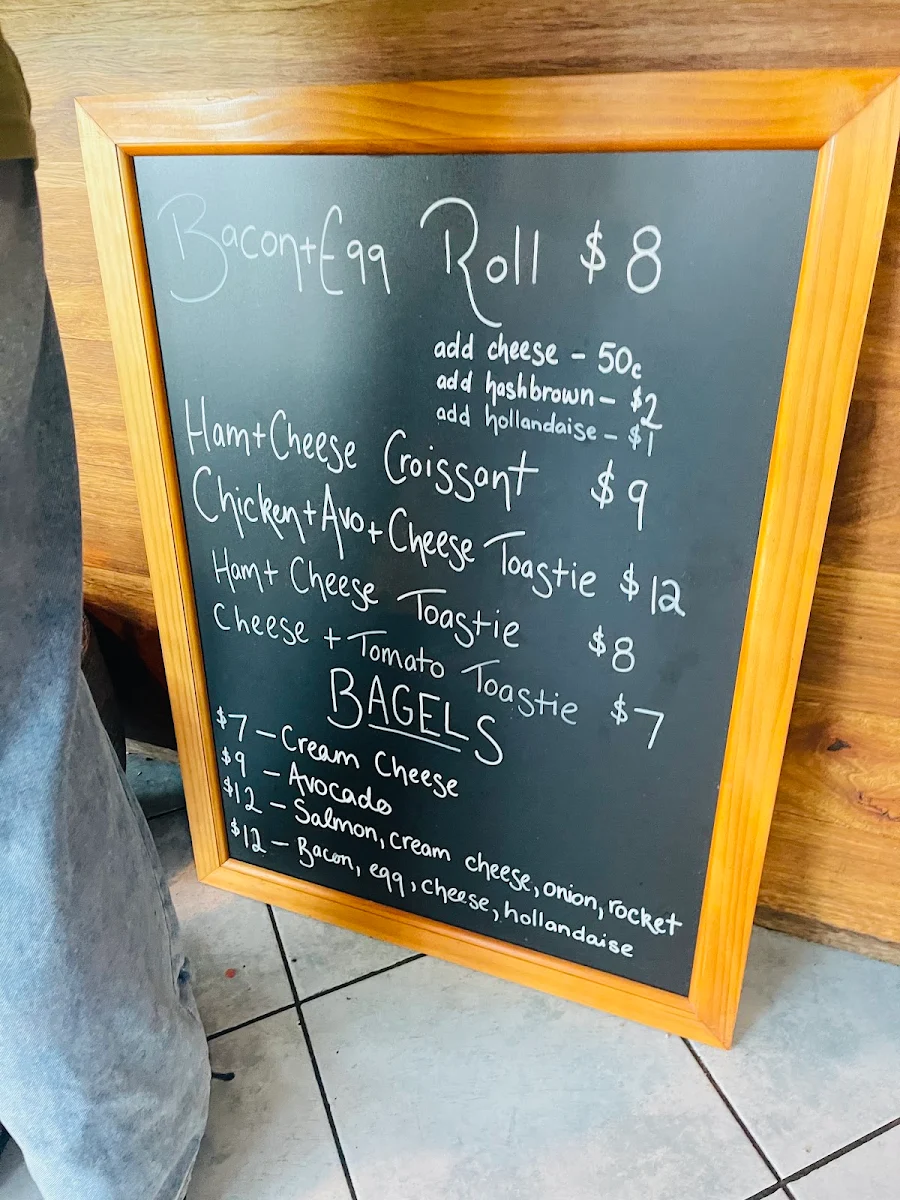 Bacon+Egg Roll $8
add cheese - 50c
add hashbrown - $2
add hollandaise - $1
Ham+Cheese Croissant $9
Chicken+Avo+Cheese Toastie $12
Ham+ Cheese Toastie $8
Cheese + Tomato Toastie $7
BAGELS
$7 - Cream Cheese
$9 - Avocado
$12 - Salmon, cream cheese, onion, rocket
$12 - Bacon, egg, cheese, hollandaise